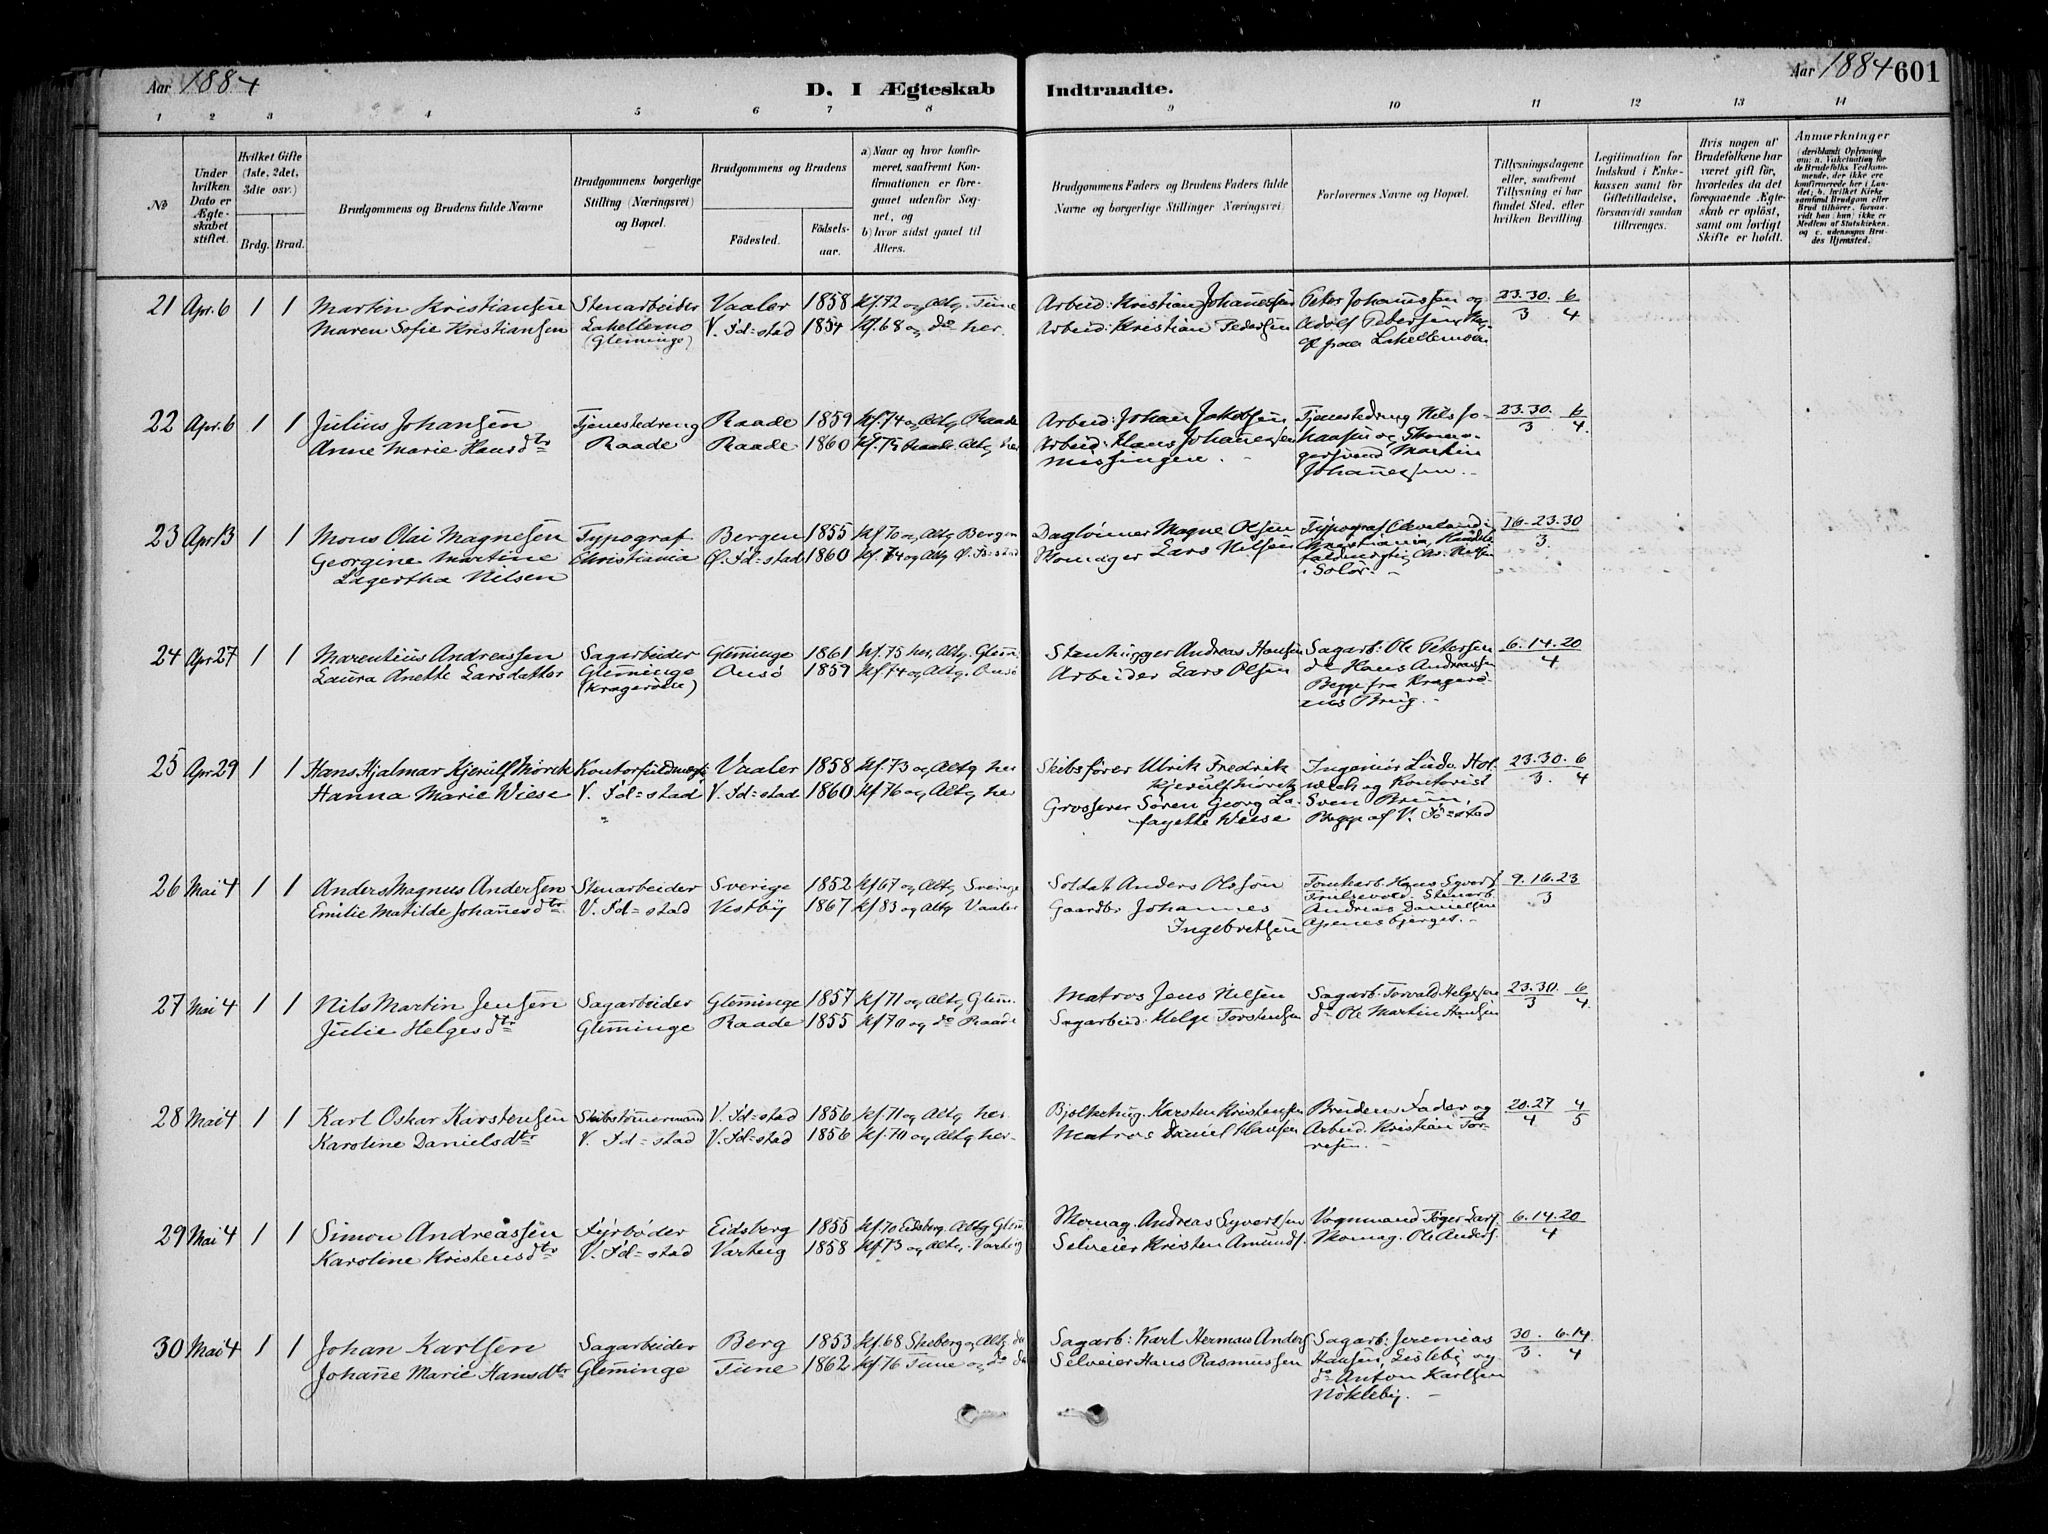 Aar 1884
D. I Ægteskab Indtraadte.
Aar 1884 601
1 2 3 4 5 6 7 8 9 10 11 12 13 14
№
Under hvilken Dato er Ægteskabet stiftet.
Hvilket Gifte (1ste, 2det, 3die osv.)
Brdg. Brud.
Brudgommens og Brudens fulde Navne
Brudgommens borgerlige Stilling (Næringsvei) og Bopæl.
Brudgommens og Brudens
Fødested. Fødselsaar.
a) Naar og hvor konfirmeret, saafremt Konfirmationen er foregaaet udenfor Sognet, og
b) hvor sidst gaaet til Alters.
Brudgommens Faders og Brudens Faders fulde Navne og borgerlige Stillinger (Næringsvei)
Forlovernes Navne og Bopæl.
Tillysningsdagene eller, saafremt Tillysning ei har fundet Sted, efter hvilken Bevilling.
Legitimation for Indskud i Enkekassen samt for Giftetilladelse, forsaavidt saadan tiltrænges.
Hvis nogen af Brudefolkene har været gift før, hvorledes da det foregaaende Ægteskab er opløst, samt om lovligt Skifte er holdt.
Anmerkninger (deriblandt Oplysning om: a. Vakcination for de Brudefolks Vedkommende, der ikke ere konfirmerede her i Landet; b. hvilket Kirkesamfund Brudgom eller Brud tilhører, forsavidt han (hun) ikke er Medlem af Statskirken, og c. udensogns Brudes Hjemsted.
21 Apr. 6 1 1 Martin Kristiansen Stenarbeider Vaaler 1858 kf. 72 og Altg. Tune Arbeid: Kristian Johanessen Peter Johannssen og 23. 30. 6
Maren Sofie Kristiansen Lahellemo V. Fd=stad 1854 kf. 68 og do her. Arbeid: Kristian Pedersen Adolf Petersen 3 4
(Glemminge) fraa Lahellemoen
22 Apr. 6 1 1 Julius Johansen Tjenestedreng Raade 1859 kf. 74 og Altg Raade Arbeid: Johan Jakobsen Tjenestedreng Nils Jo- 23. 30. 6
Anne Marie Hansdtr Raade Raade 1860 kf. 75 Raade. Altg her Arbeid: Hans Johannesen hansen og 3 4.
Missingen. Martin
Johannessen.
23 Apr 13 1 1 Mons Olai Magnesen Typograf Bergen 1855 kf 70 og Altg Bergen Daglönner Magne Olsen Typograf Cleveland i 16. 23. 30
Georgine Martine Christiania Ø. Fd=stad 1860 kf. 74 og Altg Ø. Fd=stad Skomager Lars Nilsen Christiania, Handels 3.
Lagertha Nilsen fuldmægtig Chr. Nilsen
i Solör.
24 Apr 27 1 1 Marentius Andreassen Sagarbeider Glemminge 1861 kf. 75 her, Altg. Glem Stenhugger Andreas Hansen Sagarb: Ole Petersen 6. 14. 20
Laura Anette Larsdatter Glemminge Onsö 1859 kf. 74 og Altg. Onsö Arbeider Lars Olsen do Hans Andreassen 4
(Krageröen) Begge fra Kragerö-
ens Brug.
25 Apr 29 1 1 Hans Hjalmar Kjerulf Mörch Kontorfuldmægt Vaaler 1858 kf. 73 og Altg her Skibsfører Ulrik Fredrik Ingeniör Ludv. Hol- 23. 30. 6
Hanna Marie Wiese V. Fd=stad V. Fd=stad 1860 kf 76 og Altg her Kjerulf Mörch og Kontorist 3. 4
" Grosserer Sören Georg La- Sven Brun,
fayette Wiese Begge af V. Fd=stad
26 Mai 4 1 1 Anders Magnus Andersen Stenarbeider Sverige 1852 kf 67 og Altg Sverige Soldat Anders Olsson Tomtearb. Hans Syverts 9. 16. 23
Emilie Matilde Johanesdtr V. Fd=stad Vestby 1867 kf 83 og Altg Vaaler Gaardbr Johannes Trulsevold, Stenarb. 3
Ingebretsen Andreas Danielsen
Apenesbjerget.
27 Mai 4 1 1 Nils Martin Jensen Sagarbeider Glemminge 1857 kf 71 og Altg Glem. Matros Jens Nilsen Sagarb: Torvald Helgesen 23. 30. 6
Julie Helgesdtr Glemminge Raade 1855 kf 70 og do Raade Sagarbeid: Helge Torstensen do Ole Martin Hansen 3 4
28 Mai 4 1 1 Karl Oskar Karstensen Skibstömermand V. Fd=stad 1856 kf. 71 og Altg her. Bjelkehug. Karsten Kristensen Brudens Fader og 20. 27 4
Karoline Danielsdtr V. Fd=stad V. Fd=stad 1856 kf. 70 og Altg her. Matros Daniel Hansen Arbeid. Kristian Tor- 4 5
resen.
29 Mai 4 1 1 Simon Andreassen Fyrböder Eidsberg 1855 kf. 70 Eidsberg. Altg Glem Skomag. Andreas Syvertsen Vognmand Töger Lars. 6. 14. 20
Karoline Kristensdtr V. Fd=stad Varteig 1858 kf 73 og Altg. Varteig Selveier Kristen Amunds. Skomag. Ole Anders. 4
30 Mai 4 1 1 Johan Karlsen Sagarbeider Berg 1853 kf. 68 Skeberg og Altg do Sagarb: Karl Herman Anders Sagarb: Jeremias 30. 6. 14.
Johanne Marie Hansdtr Glemminge Tune 1862 kf 76 Tune og do do Selveier Hans Rasmussen Hansen, Gisleby og 3. 4
do Anton Karlsen
Nökleby.